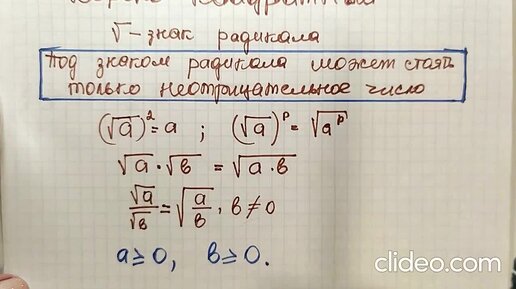 √ - знак радикала
Под знаком радикала может стоять
только неотрицательное число
(√a)² = a ; (√a)ᵖ = √aᵖ
√a · √в = √a · в
√a/√в = √a/в, в ≠ 0
a ≥ 0, в ≥ 0.
clideo.com